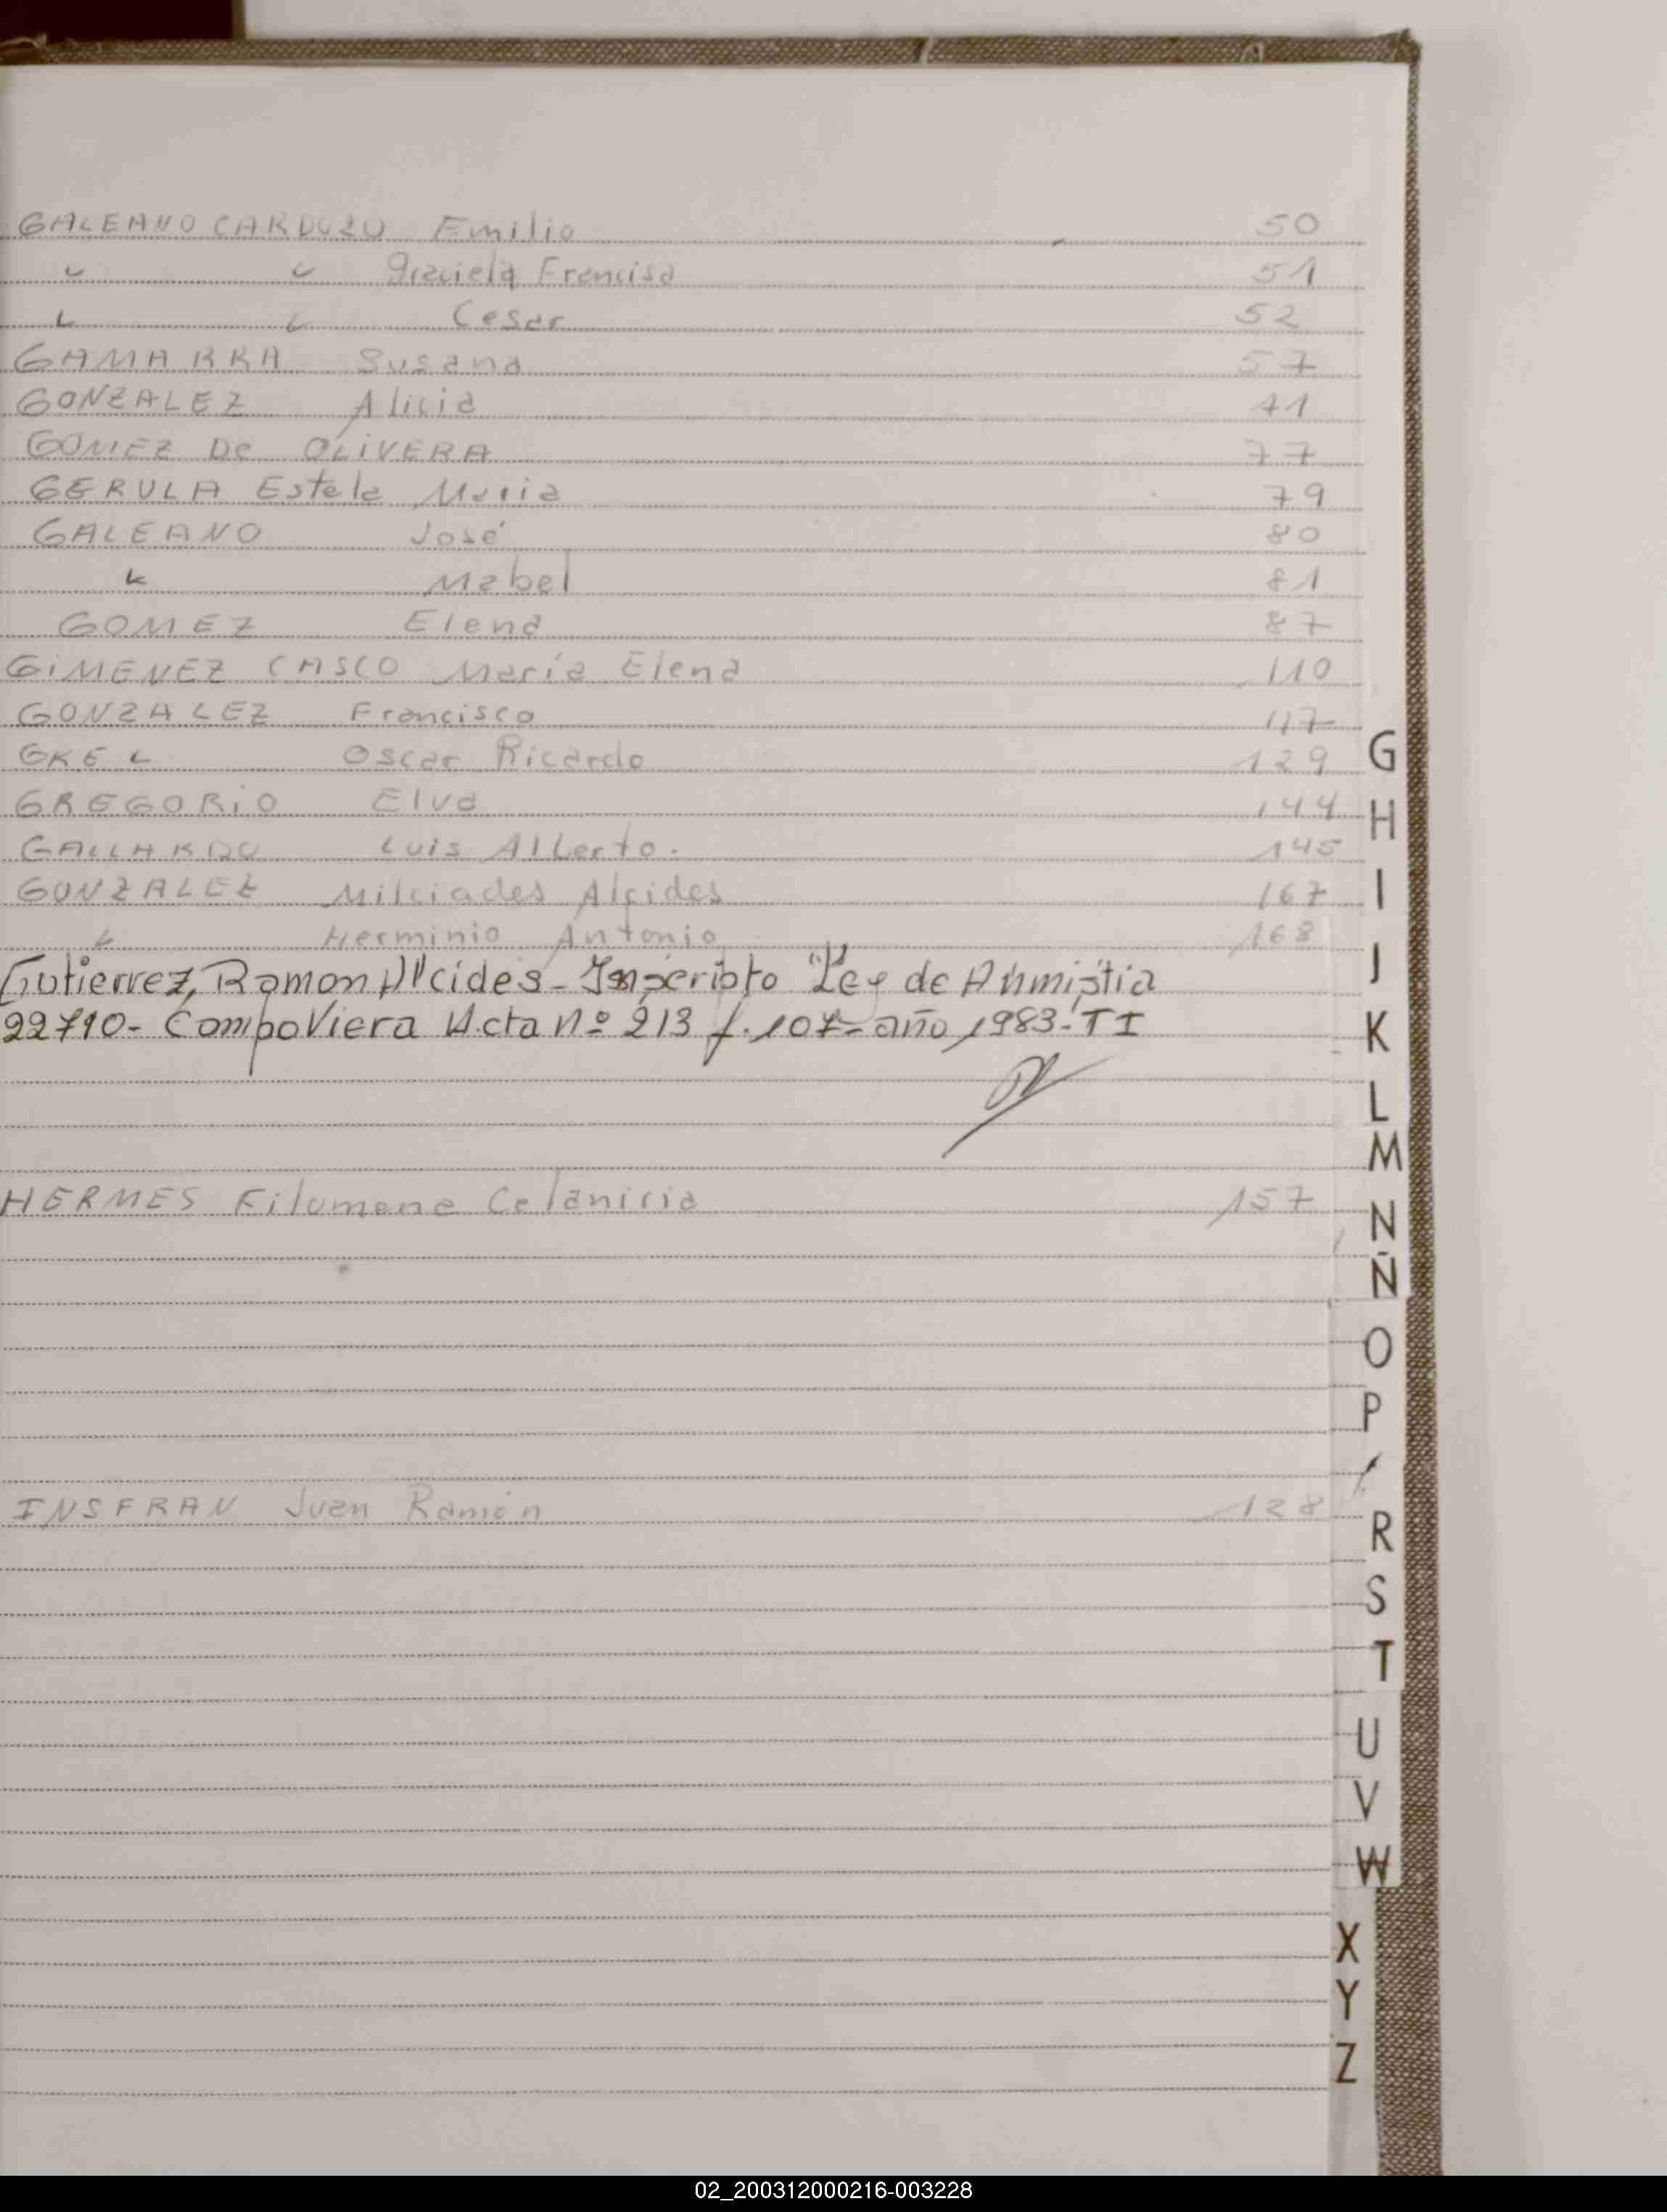 GALEANO CARDOZO Emilio 50
" " Graciela Francisa 51
" " Cesar 52
GAMARRA Susana 57
GONZALEZ Alicia 71
GOMEZ De OLIVERA 77
GERULA Estela Maria 79
GALEANO José 80
" Mabel 81
GOMEZ Elena 87
GIMENEZ CASCO María Elena 110
GONZALEZ Francisco 117
Oscar Ricardo 129
GREGORIO Elva 144
GALLARDO Luis Alberto. 145
GONZALEZ Milciades Alcides 167
" Herminio Antonio 168
Gutierrez, Ramon Alcides - Inscripto "Ley de Ahmistia"
22710 - Campo Viera Acta Nº 213 f. 107 - año 1983 - TI
HERMES Filomena 157
INSFRAN Juan Ramón 128
G
H
I
J
K
L
M
N
Ñ
O
P
R
S
T
U
V
W
X
Y
Z
02_200312000216-003228